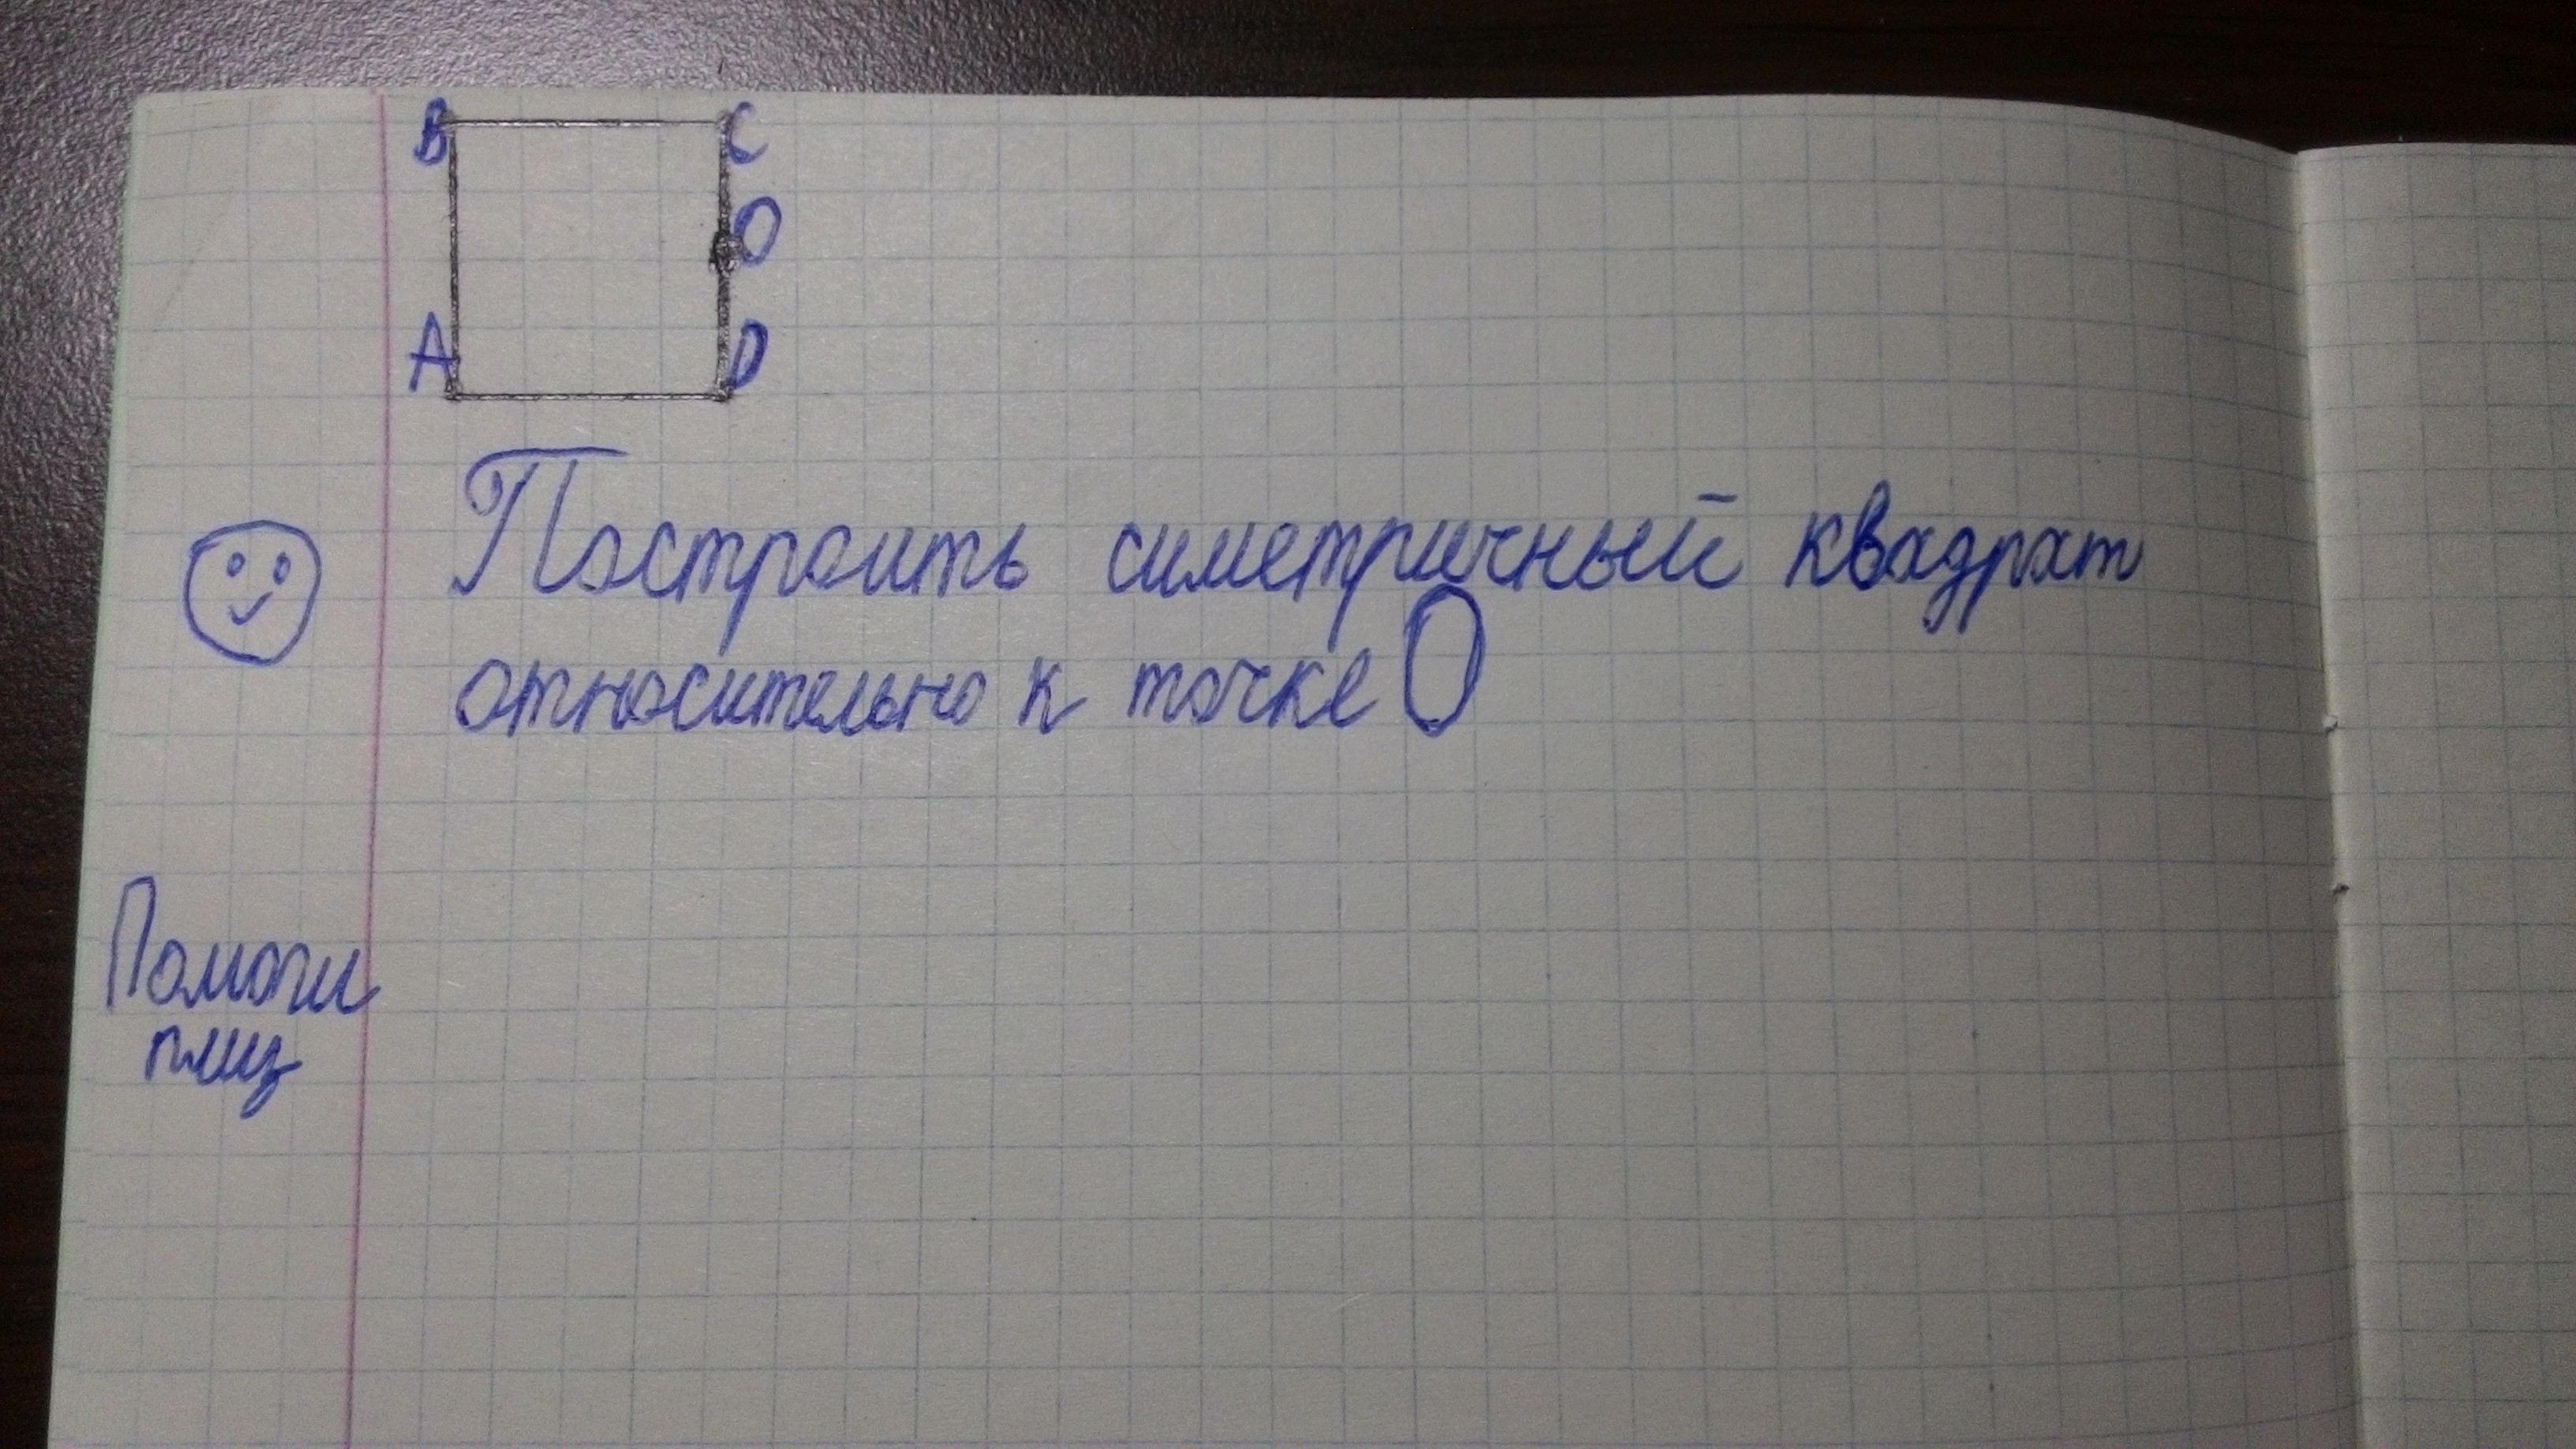 B C
O
A D
Построить симетричный квадрат
относительно к точке O
Помоги
плиз